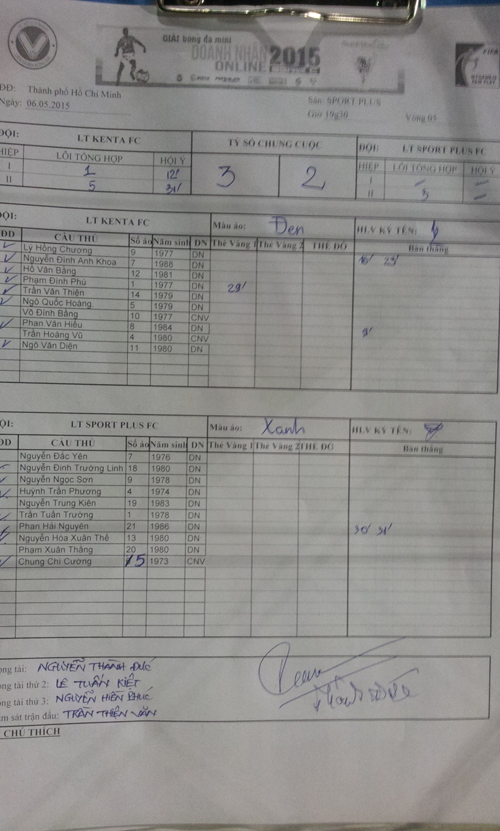 GIẢI bóng đá mini
DOANH NHÂN 2015
ONLINE
FIFA
ĐĐ: Thành phố Hồ Chí Minh
Ngày: 06.05.2015
Sân: SPORT PLUS
Giờ 19g30
Vòng 05
ĐỘI: LT KENTA FC TỶ SỐ CHUNG CUỘC ĐỘI: LT SPORT PLUS FC
HIỆP LỖI TỔNG HỢP HỘI Ý 3 2 HIỆP LỖI TỔNG HỢP HỘI Ý
I 1 12' I - -
II 5 31' II 3 -
ĐỘI: LT KENTA FC Màu áo: Đen HLV KÝ TÊN:
DD CẦU THỦ Số áo Năm sinh DN Thẻ Vàng 1 Thẻ Vàng 2 THẺ ĐỎ Bàn thắng
Lý Hồng Chương 9 1977 DN
Nguyễn Đình Anh Khoa 7 1988 DN
Hồ Văn Bằng 12 1981 DN
Phạm Đình Phú 1 1977 DN
Trần Văn Thiện 14 1979 DN
Ngô Quốc Hoàng 5 1979 DN
Võ Đình Bằng 10 1977 CNV
Phan Văn Hiếu 8 1984 DN
Trần Hoàng Vũ 4 1980 CNV
Ngô Văn Diện 11 1980 DN
ĐỘI: LT SPORT PLUS FC Màu áo: Xanh HLV KÝ TÊN:
DD CẦU THỦ Số áo Năm sinh DN Thẻ Vàng 1 Thẻ Vàng 2 THẺ ĐỎ Bàn thắng
Nguyễn Đắc Yên 7 1976 DN
Nguyễn Đình Trường Linh 18 1980 DN
Nguyễn Ngọc Sơn 9 1978 DN
Huỳnh Trần Phương 4 1974 DN
Nguyễn Trung Kiên 19 1983 DN
Trần Tuấn Trường 1 1978 DN
Phan Hải Nguyên 21 1986 DN 30' 31'
Nguyễn Hòa Xuân Thế 13 1980 DN
Phạm Xuân Thắng 20 1980 DN
Chung Chí Cường 15 1973 CNV
ọng tài: NGUYỄN THÀNH ĐỨC
ọng tài thứ 2: LÊ TUẤN KIỆT
ọng tài thứ 3: NGUYỄN HIỀN PHÚC
ám sát trận đấu: TRẦN THIỆN VĂN
CHÚ THÍCH